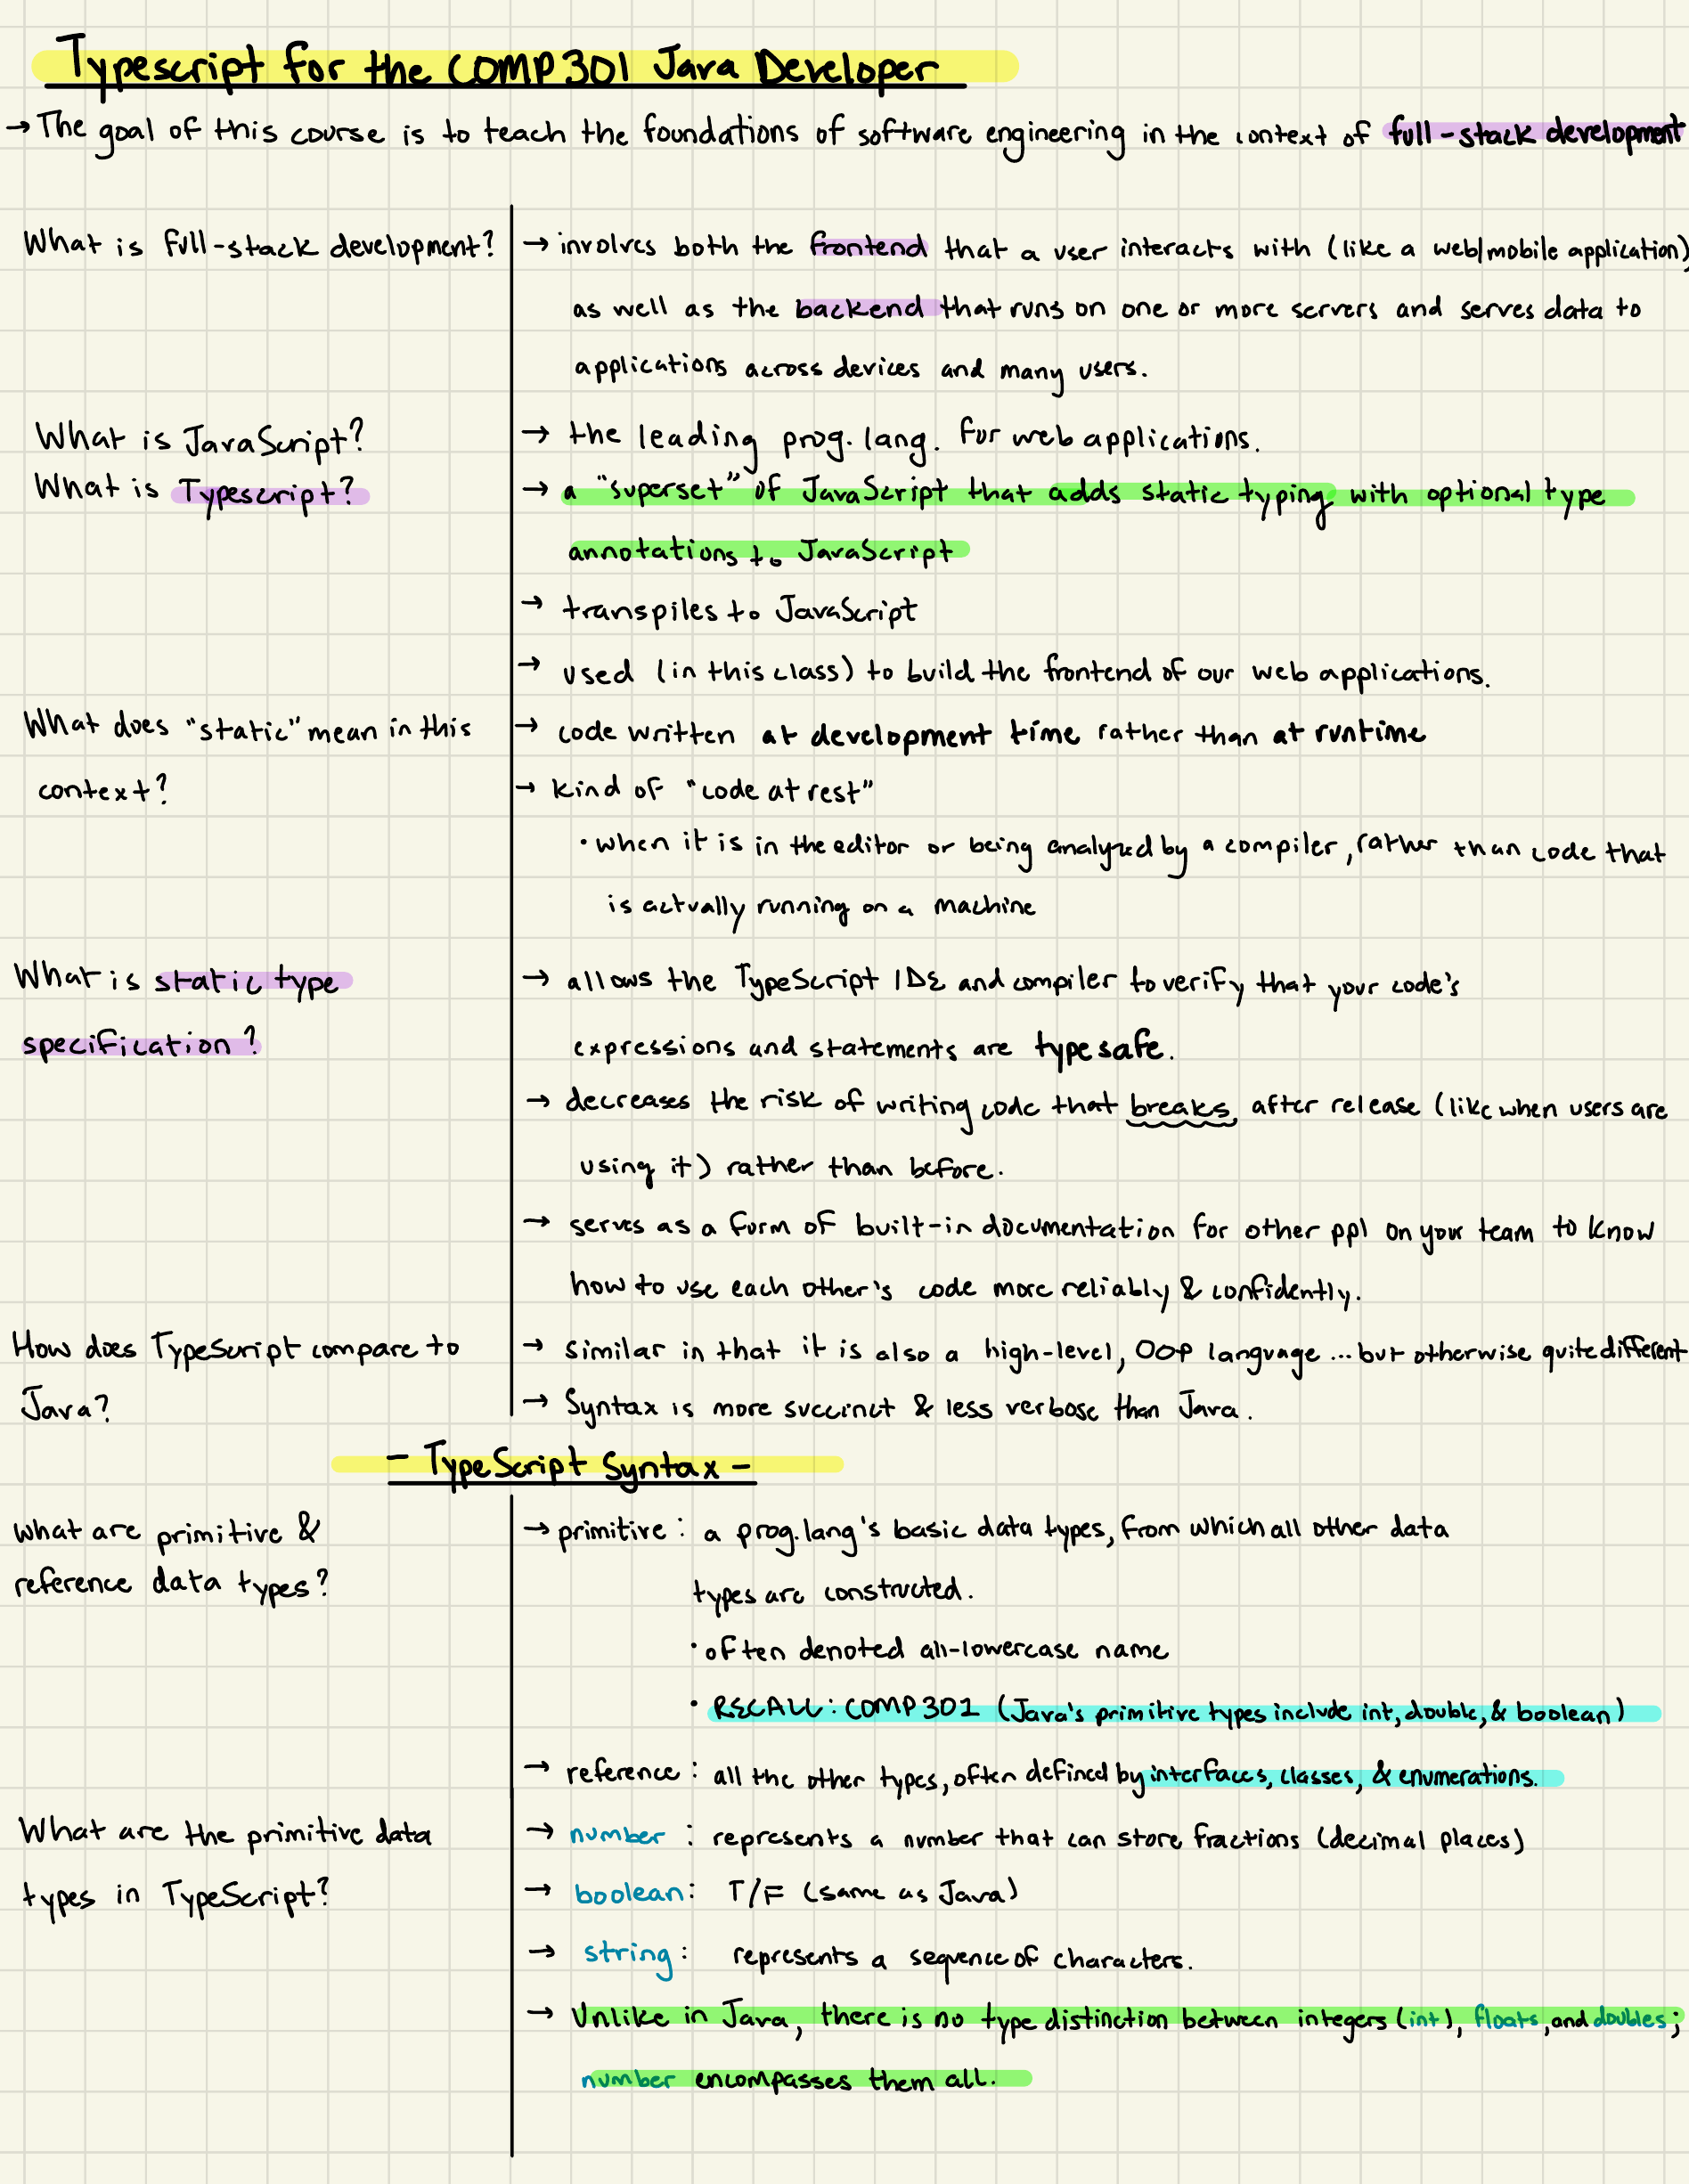 Typescript for the COMP301 Java Developer
→ The goal of this course is to teach the foundations of software engineering in the context of full-stack development
What is full-stack development?
→ involves both the frontend that a user interacts with (like a web/mobile application)
as well as the backend that runs on one or more servers and serves data to
applications across devices and many users.
What is JavaScript?
→ the leading prog. lang. for web applications.
What is Typescript?
→ a "superset" of JavaScript that adds static typing with optional type
annotations to JavaScript
→ transpiles to JavaScript
→ used (in this class) to build the frontend of our web applications.
What does "static" mean in this
context?
→ code written at development time rather than at runtime
→ kind of "code at rest"
• when it is in the editor or being analyzed by a compiler, rather than code that
is actually running on a machine
What is static type
specification?
→ allows the TypeScript IDE and compiler to verify that your code's
expressions and statements are type safe.
→ decreases the risk of writing code that breaks after release (like when users are
using it) rather than before.
→ serves as a form of built-in documentation for other ppl on your team to know
how to use each other's code more reliably & confidently.
How does TypeScript compare to
Java?
→ similar in that it is also a high-level, OOP language ... but otherwise quite different
→ Syntax is more succinct & less verbose than Java.
- TypeScript Syntax -
what are primitive &
reference data types?
→ primitive: a prog. lang's basic data types, from which all other data
types are constructed.
• often denoted all-lowercase name
• RECALL: COMP301 (Java's primitive types include int, double, & boolean)
→ reference: all the other types, often defined by interfaces, classes, & enumerations.
What are the primitive data
types in TypeScript?
→ number: represents a number that can store fractions (decimal places)
→ boolean: T/F (same as Java)
→ string: represents a sequence of characters.
→ Unlike in Java, there is no type distinction between integers (int), floats, and doubles;
number encompasses them all.